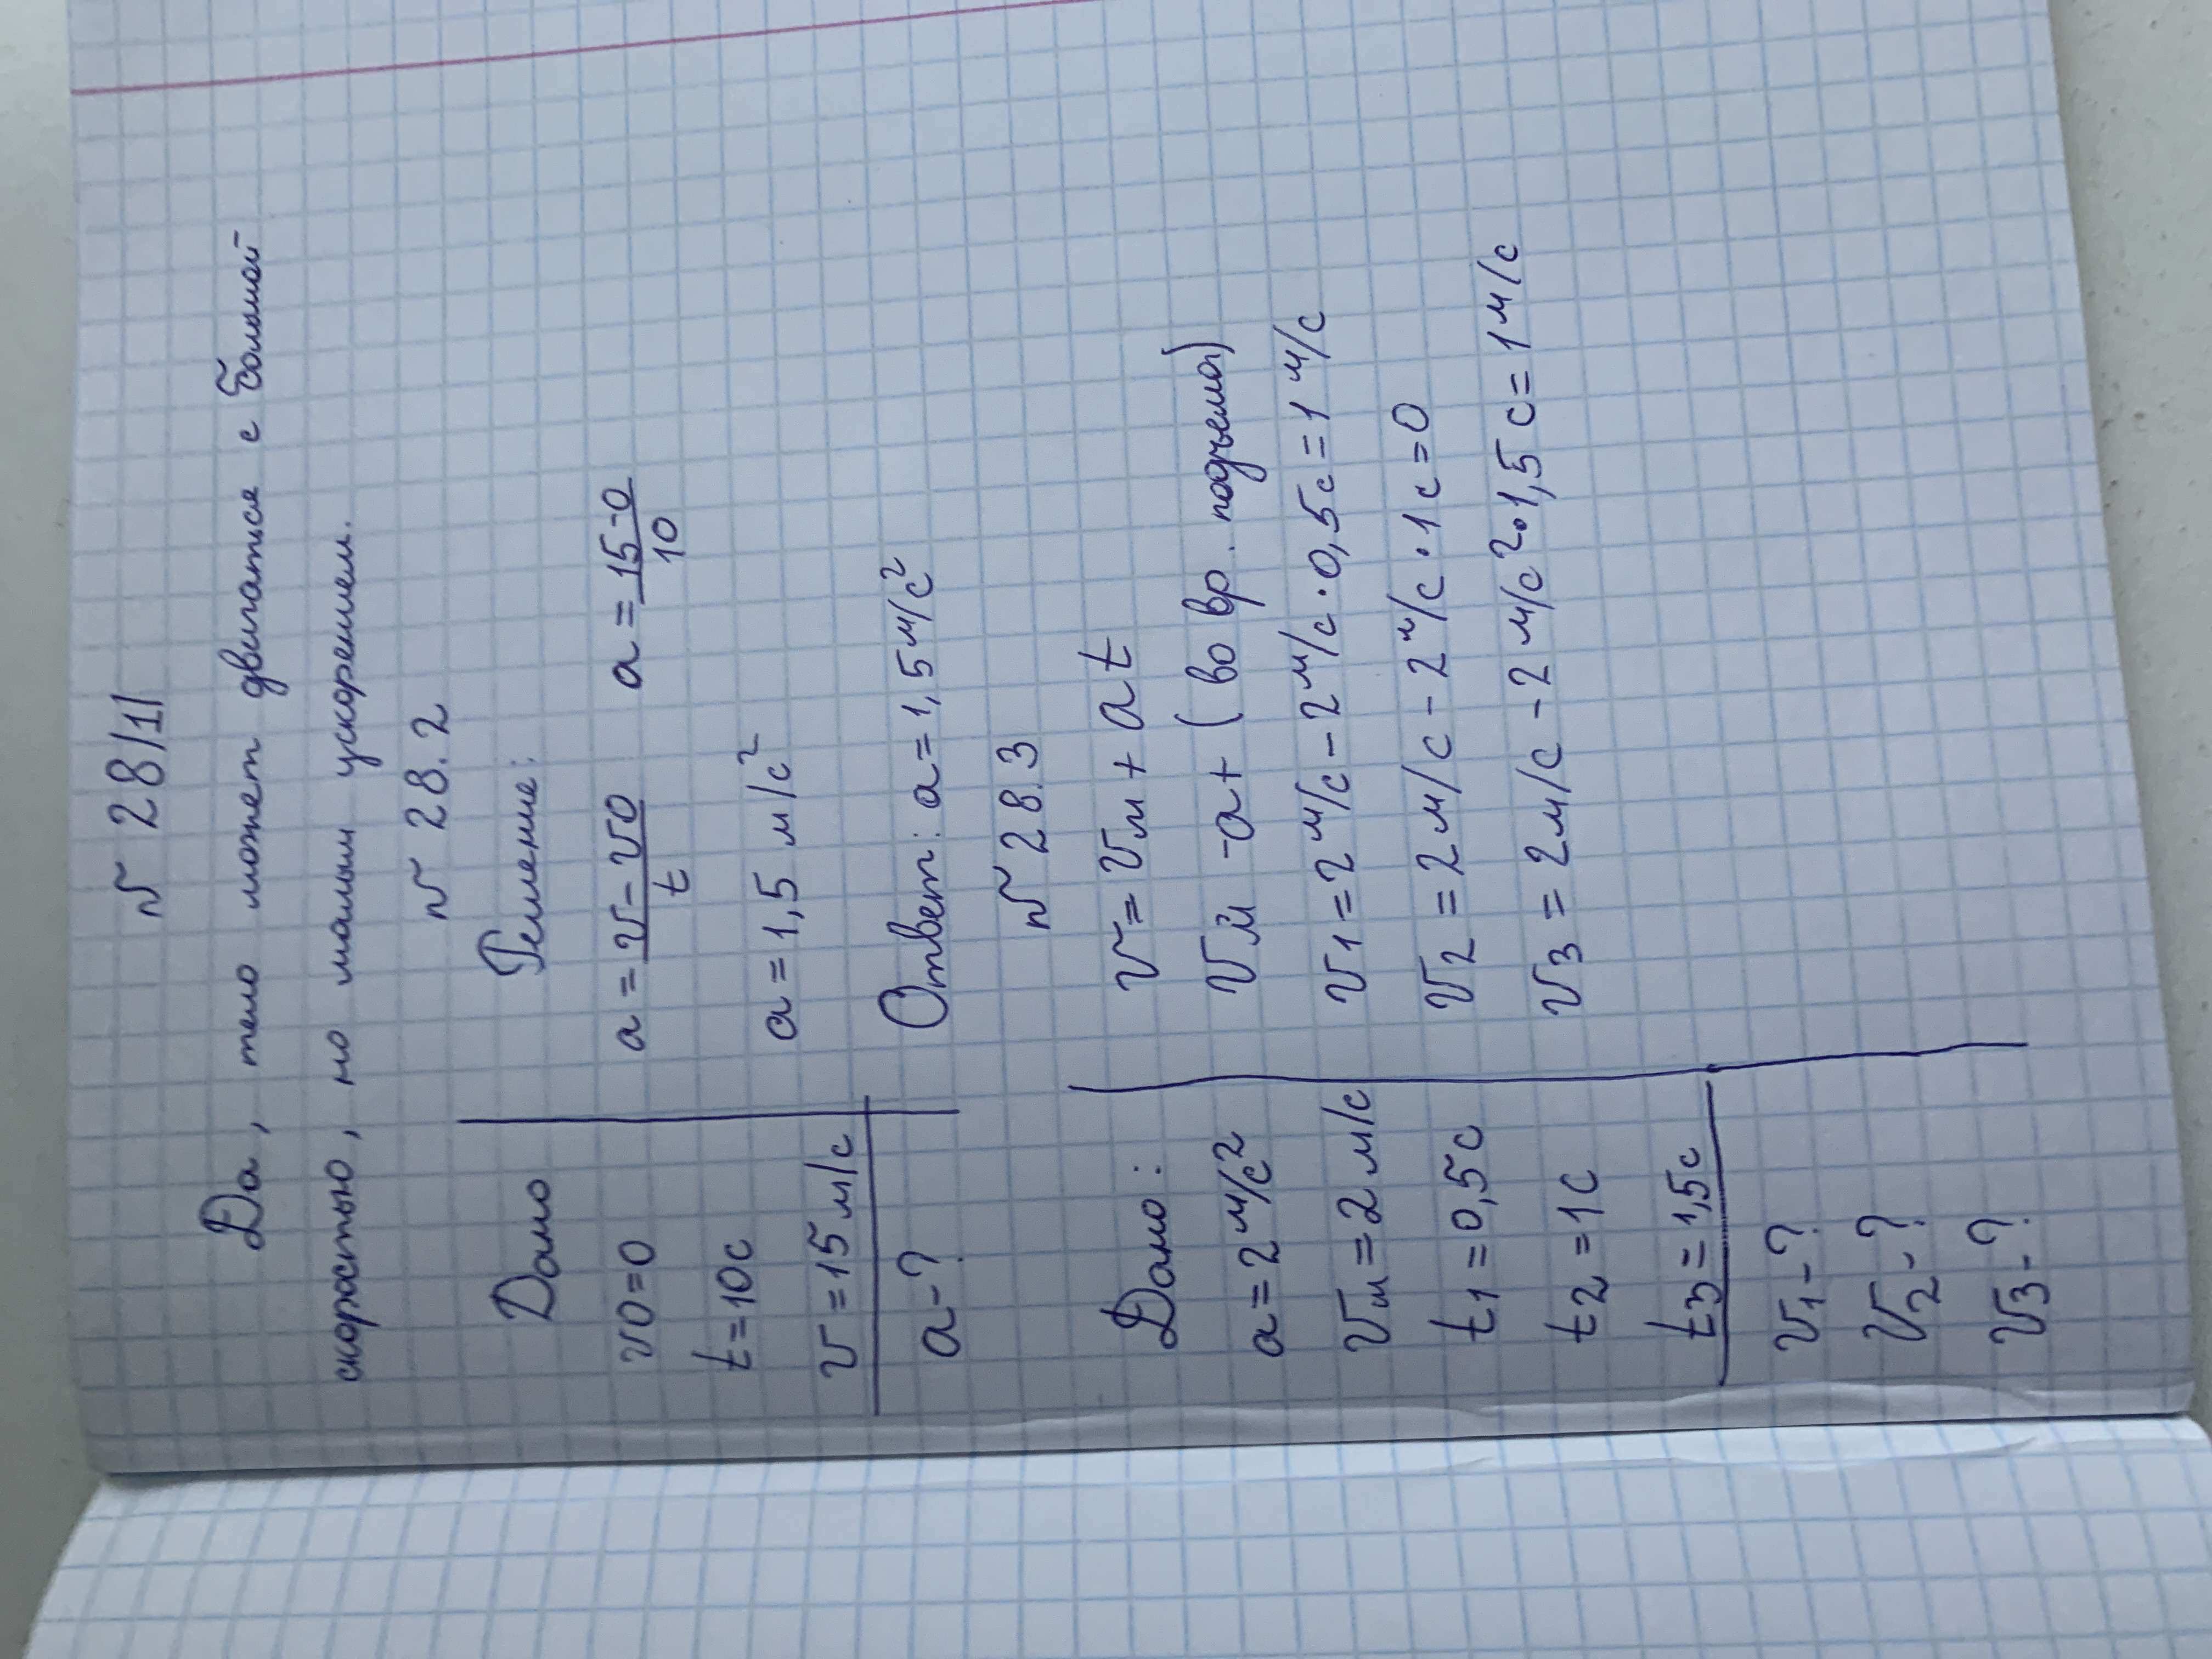 № 28/1/
Да, тело может двигатся с большой
скоростью, но малым ускорением.
№ 28.2
Дано
v0=0
t=10с
v=15 м/с
a-?
Решение:
a = v-v0/t a = 15-0/10
a = 1,5 м/с²
Ответ: a = 1,5 м/с²
№ 28.3
Дано:
a = 2 м/с²
vм = 2 м/с
t1 = 0,5с
t2 = 1с
t3 = 1,5с
v1 - ?
v2 - ?
v3 - ?
v = vм + at
vм -a+ (во вр. подъема)
v1 = 2 м/с - 2 м/с · 0,5с = 1 м/с
v2 = 2 м/с - 2 м/с · 1с = 0
v3 = 2м/с - 2 м/с² · 1,5 с = 1 м/с